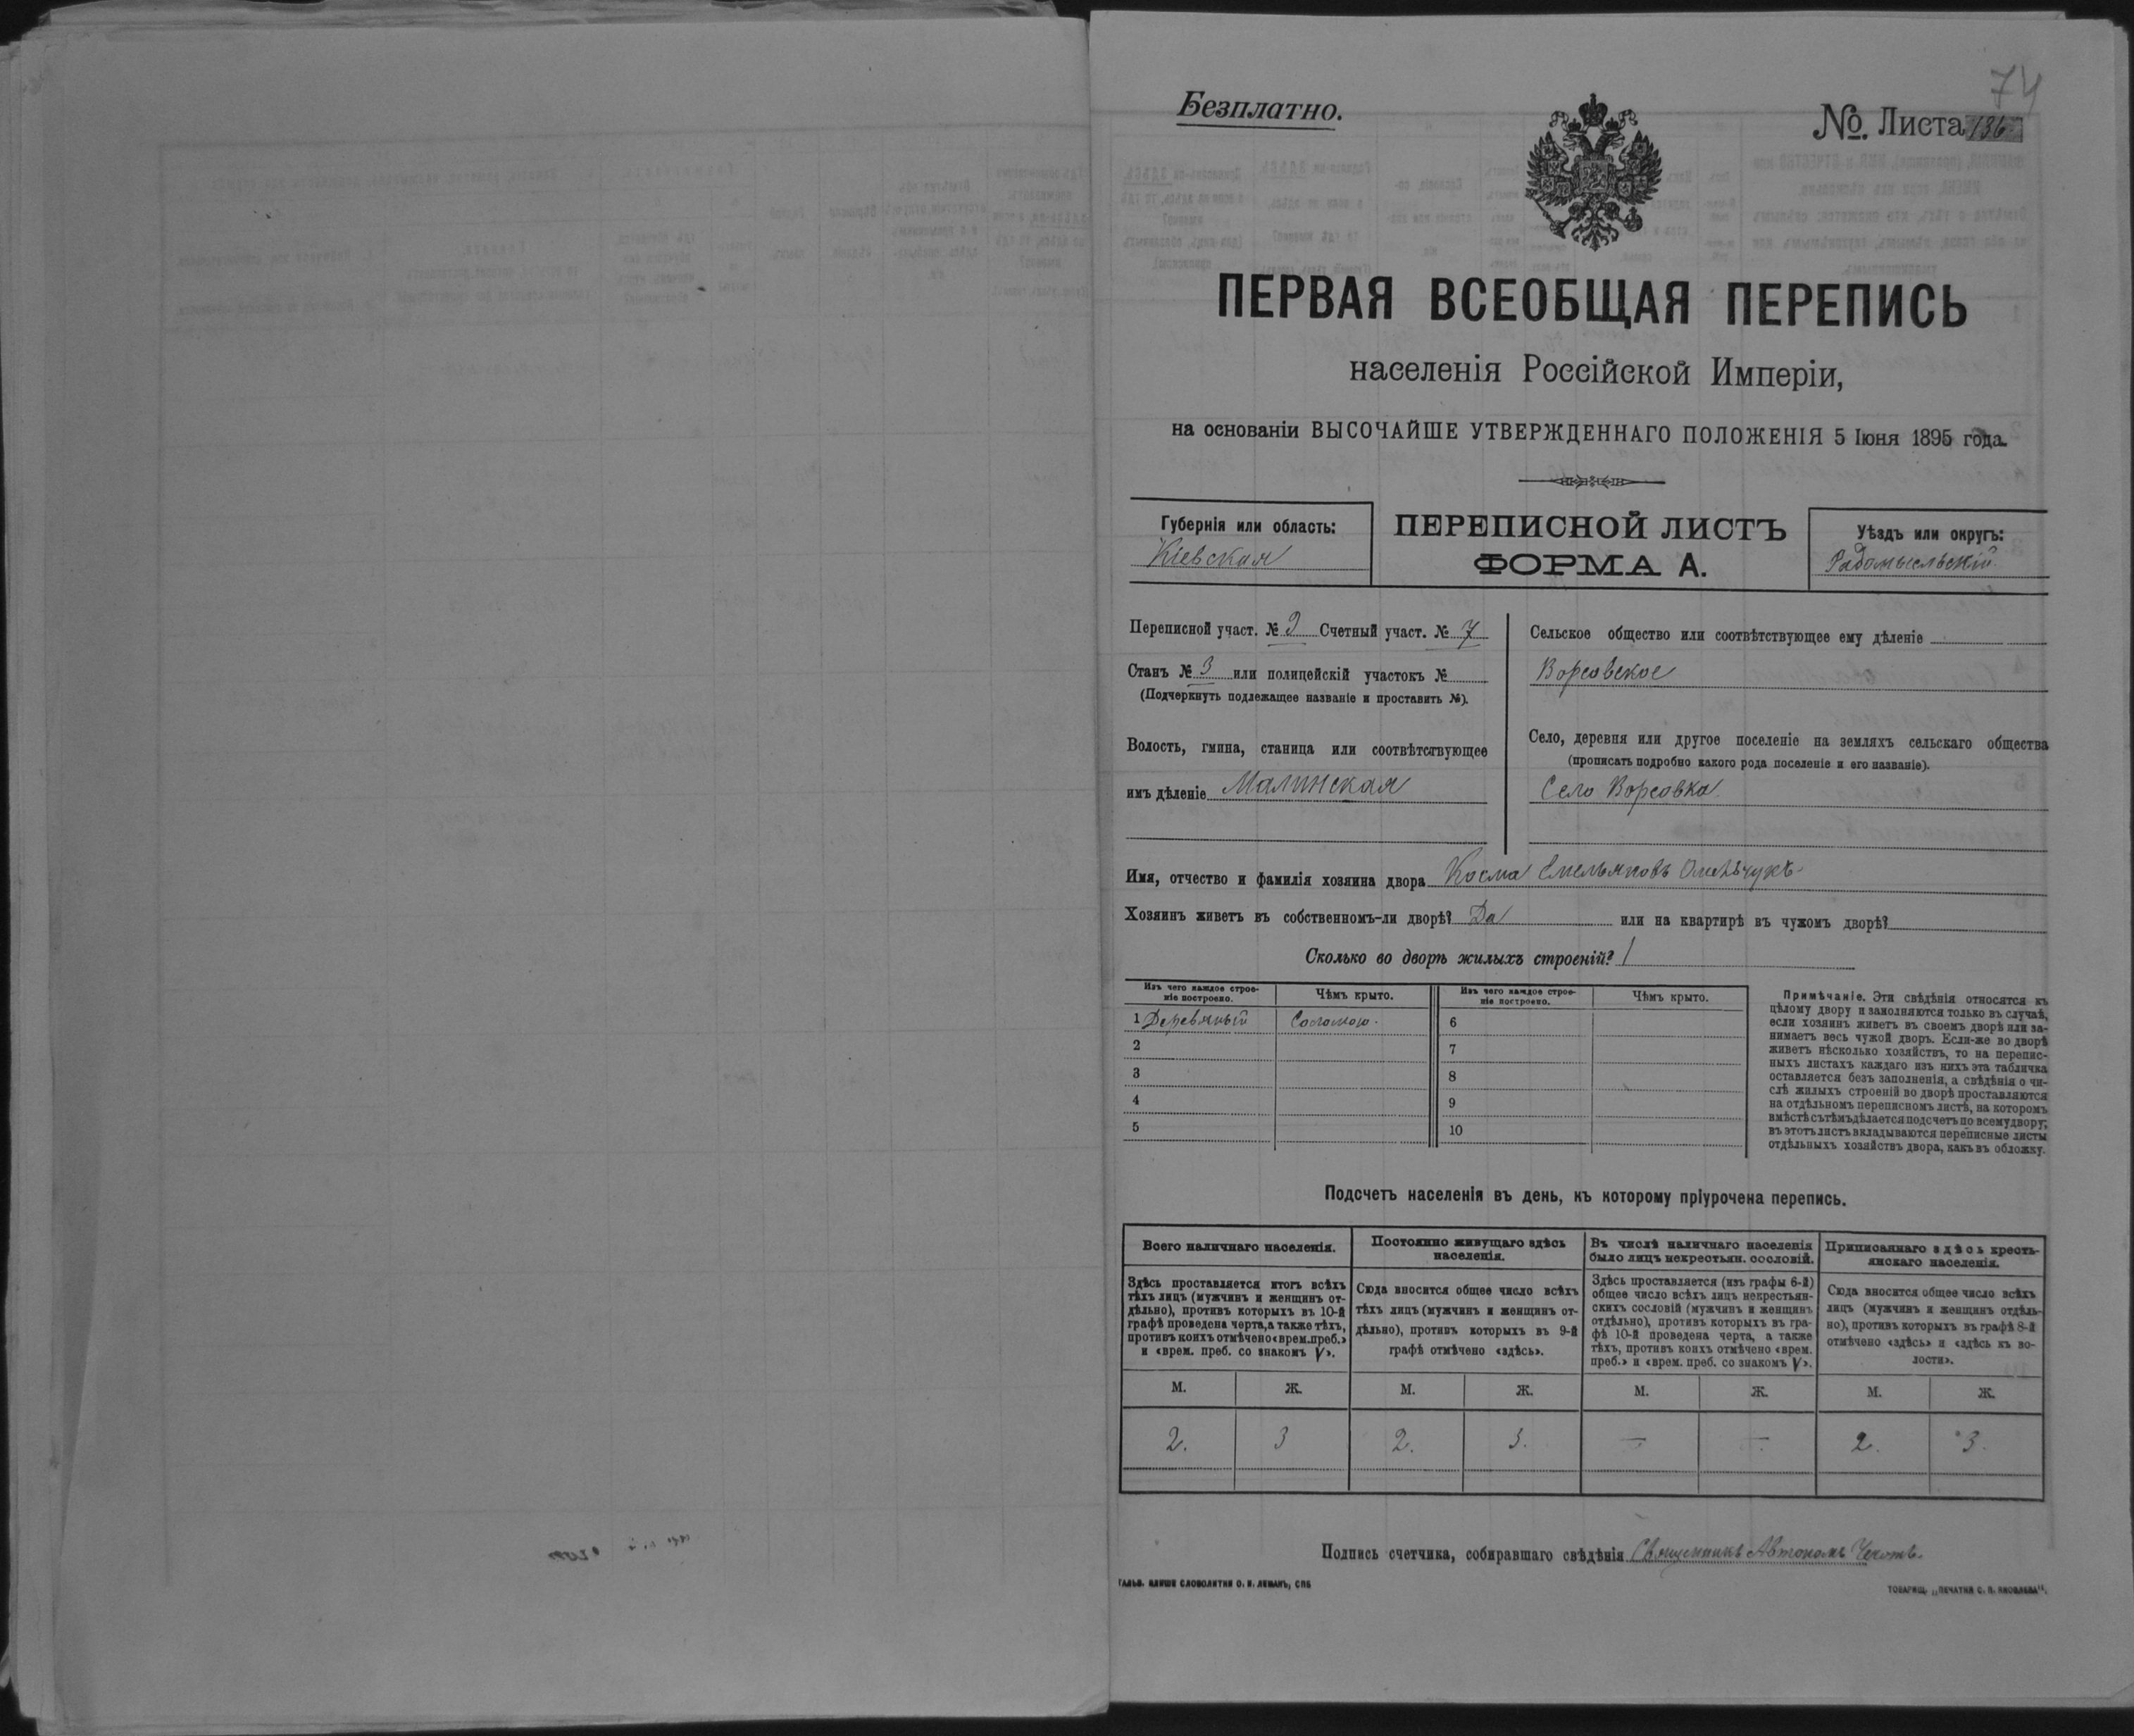 74
Безплатно.
№ Листа 136
ПЕРВАЯ ВСЕОБЩАЯ ПЕРЕПИСЬ
населенія Россійской Имперіи,
на основаніи ВЫСОЧАЙШЕ УТВЕРЖДЕННАГО ПОЛОЖЕНІЯ 5 Іюня 1895 года.
Губернія или область:
Кіевская
ПЕРЕПИСНОЙ ЛИСТЪ
ФОРМА А.
Уѣздъ или округъ:
Радомысльскій
Переписной участ. № 9 Счетный участ. № 7
Станъ № 3 или полицейскій участокъ №
(Подчеркнуть подлежащее названіе и проставить №).
Волость, гмина, станица или соотвѣтствующее
имъ дѣленіе Малинская
Сельское общество или соотвѣтствующее ему дѣленіе
Ворсовское
Село, деревня или другое поселеніе на земляхъ сельскаго общества
(прописать подробно какого рода поселеніе и его названіе).
Село Ворсовка
Имя, отчество и фамилія хозяина двора Косма Емельяновъ Омельчукъ
Хозяинъ живетъ въ собственномъ-ли дворѣ? Да или на квартирѣ въ чужомъ дворѣ?
Сколько во дворѣ жилыхъ строеній? 1
Изъ чего каждое строе-
ніе построено.
Чѣмъ крыто.
Изъ чего каждое строе-
ніе построено.
Чѣмъ крыто.
1 Деревяный Соломою. 6
2 7
3 8
4 9
5 10
Примѣчаніе. Эти свѣдѣнія относятся къ
цѣлому двору и заполняются только въ случаѣ,
если хозяинъ живетъ въ своемъ дворѣ или за-
нимаетъ весь чужой дворъ. Если-же во дворѣ
живетъ нѣсколько хозяйствъ, то на перепис-
ныхъ листахъ каждаго изъ нихъ эта табличка
оставляется безъ заполненія, а свѣдѣнія о чи-
слѣ жилыхъ строеній во дворѣ проставляются
на отдѣльномъ переписномъ листѣ, на которомъ
вмѣстѣ съ тѣмъ дѣлается подсчетъ по всему двору;
въ этотъ листъ вкладываются переписные листы
отдѣльныхъ хозяйствъ двора, какъ въ обложку.
Подсчетъ населенія въ день, къ которому пріурочена перепись.
Всего наличнаго населенія.
Здѣсь проставляется итогъ всѣхъ
тѣхъ лицъ (мужчинъ и женщинъ от-
дѣльно), противъ которыхъ въ 10-й
графѣ проведена черта, а также тѣхъ,
противъ коихъ отмѣчено «врем. преб.»
и «врем. преб. со знакомъ V».
Постоянно живущаго здѣсь
населенія.
Сюда вносится общее число всѣхъ
тѣхъ лицъ (мужчинъ и женщинъ от-
дѣльно), противъ которыхъ въ 9-й
графѣ отмѣчено «здѣсь».
Въ числѣ наличнаго населенія
было лицъ некрестьян. сословій.
Здѣсь проставляется (изъ графы 6-й)
общее число всѣхъ лицъ некрестьян-
скихъ сословій (мужчинъ и женщинъ
отдѣльно), противъ которыхъ въ гра-
фѣ 10-й проведена черта, а также
тѣхъ, противъ коихъ отмѣчено «врем.
преб.» и «врем. преб. со знакомъ V».
Приписаннаго здѣсь кресть-
янскаго населенія.
Сюда вносится общее число всѣхъ
лицъ (мужчинъ и женщинъ отдѣль-
но), противъ которыхъ въ графѣ 8-й
отмѣчено «здѣсь» и «здѣсь къ во-
лости».
М. Ж. М. Ж. М. Ж. М. Ж.
2. 3 2. 3. — — 2. 3.
Подпись счетчика, собиравшаго свѣдѣнія Священникъ Автономъ
ГАЛЬВ. КЛИШЕ СЛОВОЛИТНИ О. И. ЛЕМАНЪ, СПБ
ТОВАРИЩ. „ПЕЧАТНЯ С. П. ЯКОВЛЕВА".